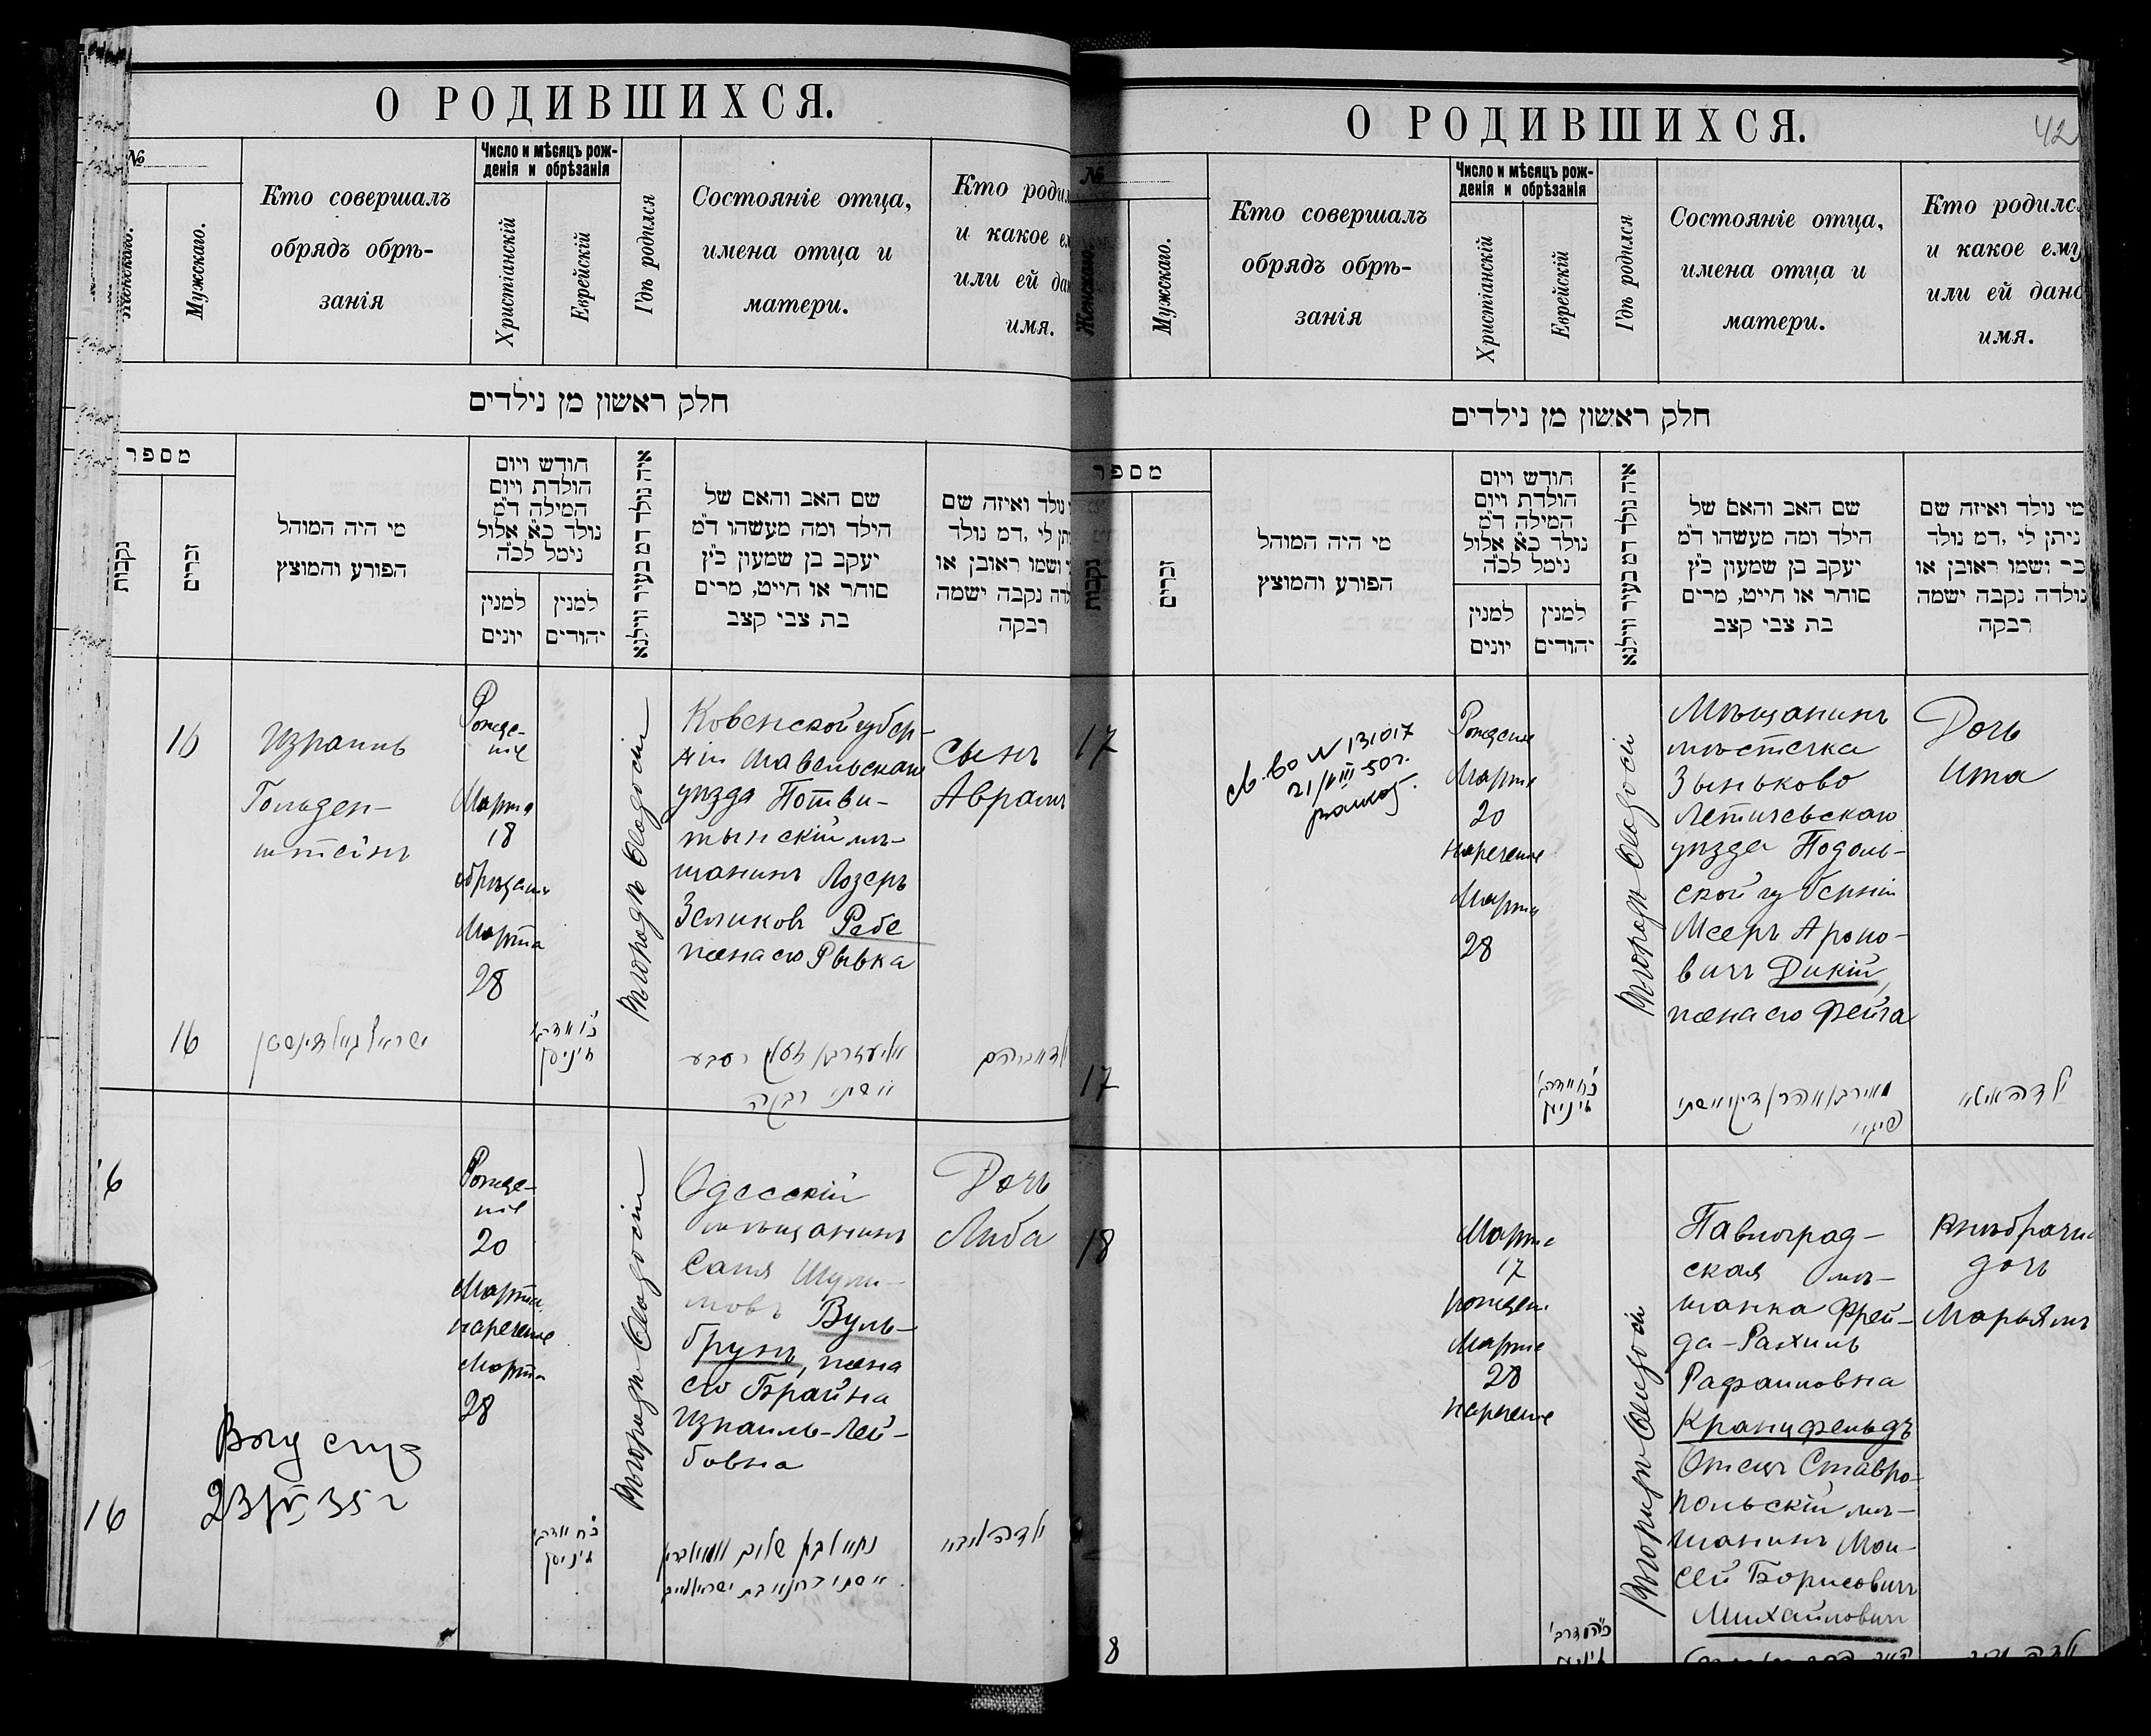 О РОДИВШИХСЯ.
№
Женскаго.
Мужскаго.
Кто совершалъ
обрядъ обрѣ-
занія
Число и мѣсяцъ рож-
денія и обрѣзанія
Христіанскій
Еврейскій
Гдѣ родился
Состояніе отца,
имена отца и
матери.
Кто родил
и какое е
или ей дан
имя.
חלק ראשון מן נילדים
מספר
נקבות
זכרים
מי היה המוהל
הפורע והמוצץ
חודש ויום
הולדת ויום
המילה ד״מ
נולד כ״א אלול
נימל לכ״ה
למנין
יונים
למנין
יהודים
איה נולד דמ בעיר ווילנא
שם האב והאם של
הילד ומה מעשהו ד״מ
יעקב בן שמעון כ״ץ
סוחר או חייט, מרים
בת צבי קצב
נולד ואיזה שם
תן לי, דמ נולד
ושמו ראובן או
לדה נקבה ישמה
רבקה
16
Израиль
Гольден-
штейнъ
Рожде-
ніе
Марта
18
обрѣзаніе
Марта
28
Въ городѣ Ѳеодосіи
Ковенской губер-
ніи Шавельскаго
уѣзда
мѣ-
щанинъ Лозеръ
Зеликовъ Рабе
жена его Рывка
Сынъ
Аврамъ
16
ישראל גאלדענשטיין
6
Рожде-
ніе
20
Марта
нареченіе
Марта
28
Въ городѣ Ѳеодосіи
Одесскій
мѣщанинъ
Вуль-
брунъ, жена
его Брайна
Израиль-Лей-
бовна
Дочь
Либа
23/IV 35 г
16
О РОДИВШИХСЯ.
42
№
Женскаго.
Мужскаго.
Кто совершалъ
обрядъ обрѣ-
занія
Число и мѣсяцъ рож-
денія и обрѣзанія
Христіанскій
Еврейскій
Гдѣ родился
Состояніе отца,
имена отца и
матери.
Кто родилс
и какое ему
или ей дано
имя.
חלק ראשון מן נילדים
מספר
נקבות
זכרים
מי היה המוהל
הפורע והמוצץ
חודש ויום
הולדת ויום
המילה ד״מ
נולד כ״א אלול
נימל לכ״ה
למנין
יונים
למנין
יהודים
איה נולד דמ בעיר ווילנא
שם האב והאם של
הילד ומה מעשהו ד״מ
יעקב בן שמעון כ״ץ
סוחר או חייט, מרים
בת צבי קצב
מי נולד ואיזה שם
ניתן לי, דמ נולד
בר ושמו ראובן או
נולדה נקבה ישמה
רבקה
17
св.во N 131017
21/VIII-50г.
Рожденіе
Марта
20
нареченіе
Марта
28
Въ городѣ Ѳеодосіи
Мѣщанинъ
мѣстечка
Зыньково
Летичевскаго
уѣзда Подоль-
ской губерніи
Мееръ Ароно-
вичъ Дикій,
жена его Фейга
Дочь
Ита
17
18
Марта
17
рожден.
Марта
28
нареченіе
Въ городѣ Ѳеодосіи
Павлоград-
ская мѣ-
щанка Фрей-
да-Рахиль
Рафаиловна
Кранцфельдъ
Отецъ Ставро-
польскій мѣ-
щанинъ Мои-
сей Борисовичъ
Михайловичъ
Внѣбрачн
дочь
Марьямъ
8